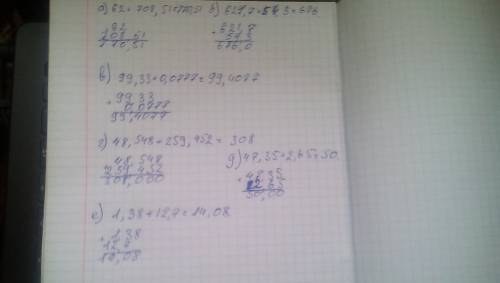 а) 62+708,51=770,51 б) 621,7+54,3=676
62
708,51
770,51
621,7
54,3
676,0
в) 99,33+0,0777=99,4077
+ 99,33
0,0777
99,4077
г) 48,548+259,452=308
48,548
259,452
308,000
д) 47,35+2,65=50
+ 47,35
2,65
50,00
е) 1,38+12,7=14,08
+ 1,38
12,7
14,08